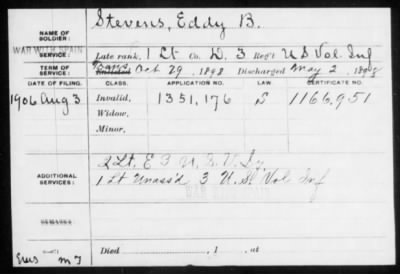 Stevens, Eddy B.
NAME OF SOLDIER:
WAR WITH SPAIN
SERVICE: Late rank, 1 Lt Co. D, 3 Reg't U S Vol. Inf
TERM OF SERVICE: Enlisted Oct 29, 1898 Discharged May 2, 1899
DATE OF FILING. CLASS. APPLICATION NO. LAW. CERTIFICATE NO.
1906 Aug 3 Invalid, 1351,176 S 1166,951
Widow,
Minor,
ADDITIONAL SERVICES: 2 Lt. E 3 U.S.V. Inf.
1 Lt Unass'd 3 U.S. Vol Inf
REMARKS:
Died , 1 , at